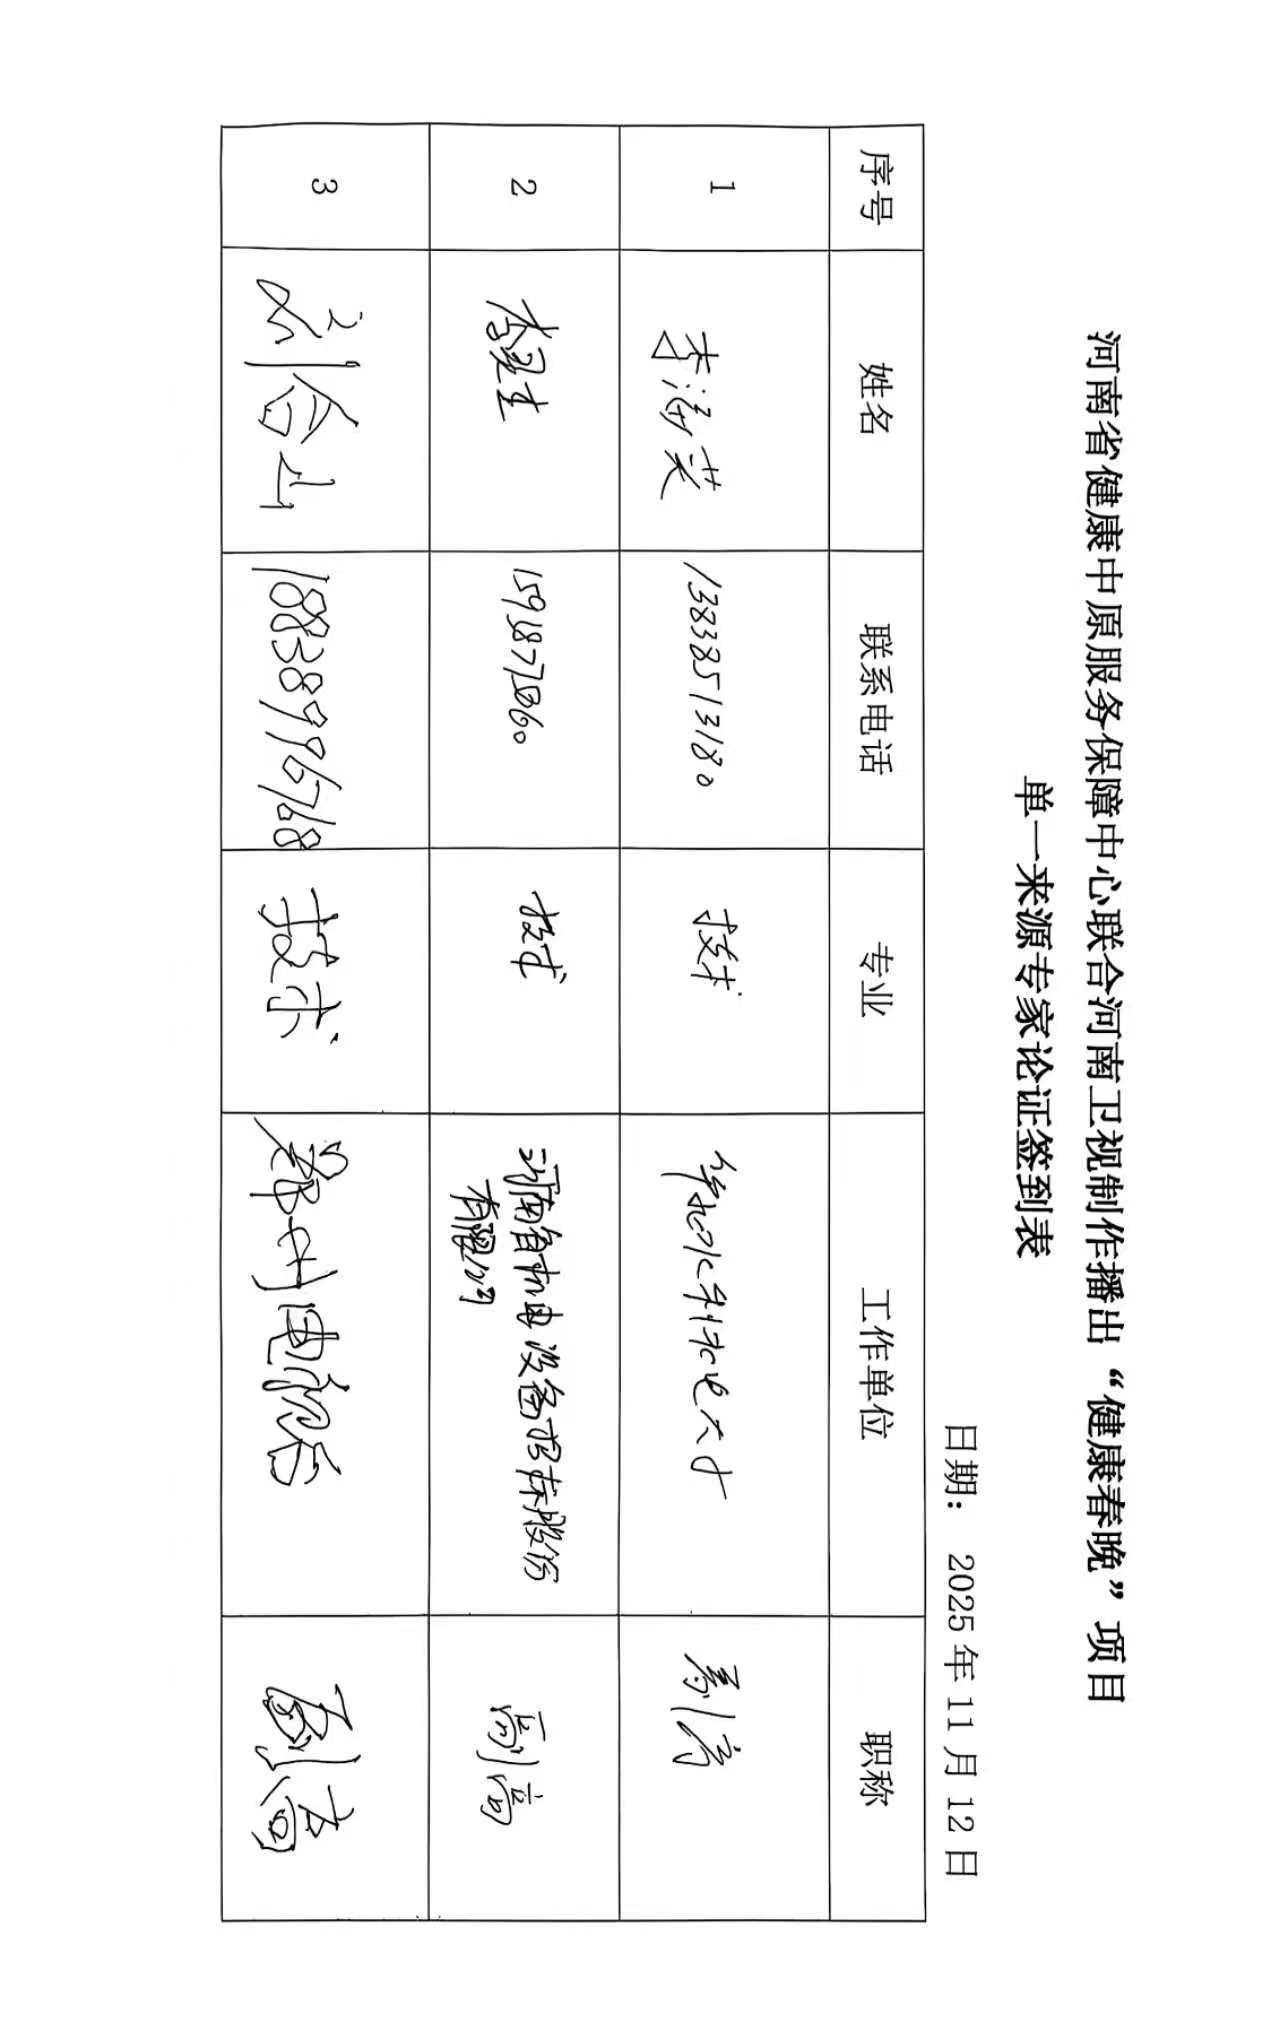 河南省健康中原服务保障中心联合河南卫视制作播出“健康春晚”项目
单一来源专家论证签到表
日期： 2025年11月12日
序号 姓名 联系电话 专业 工作单位 职称
1 李 13838513180 技术 华北水利水电大学 副高
2 李 技术 河南省机电设备招标股份有限公司 副高
3 刘合山 18838996768 技术 郑州电视台 副高